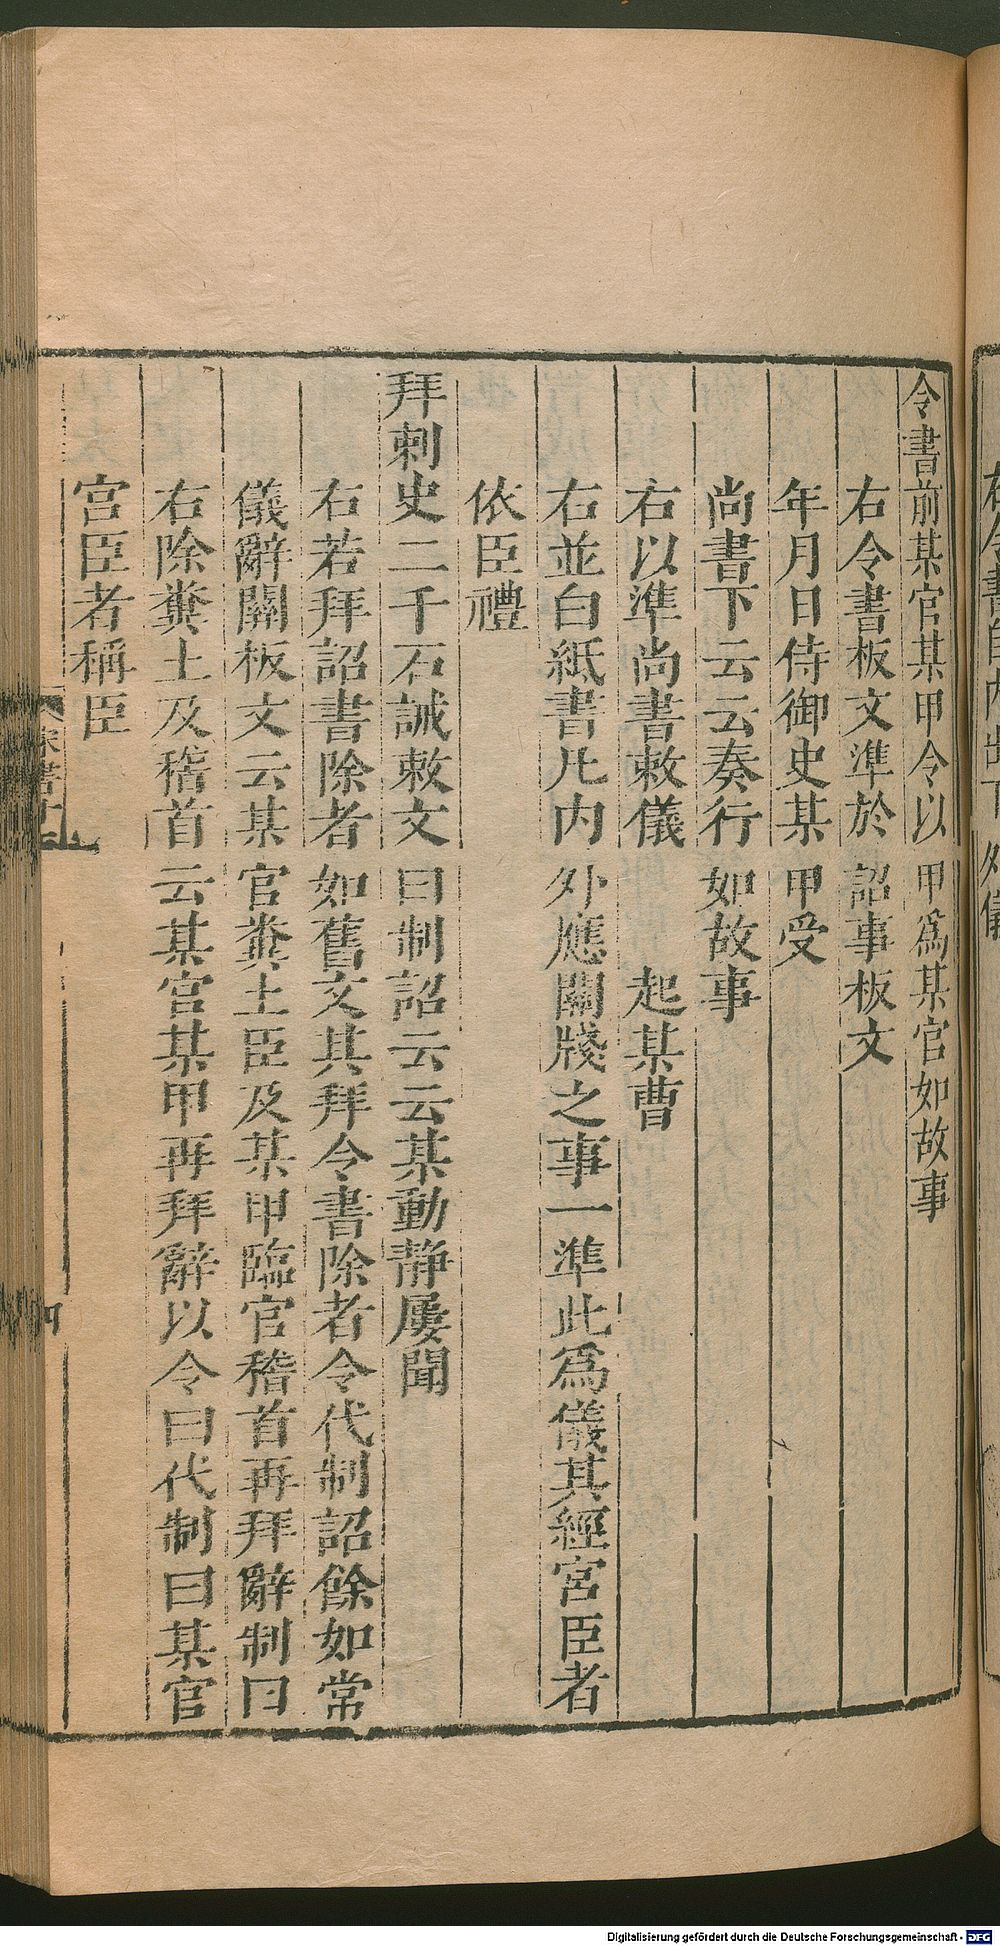 令書前某官某甲令以甲爲某官如故事
右令書板文準於詔事板文
年月日侍御史某甲受
尚書下云云奏行如故事
右以準尚書敕儀　起某曹
右並白紙書凡內外應關牋之事一準此爲儀其經宮臣者
依臣禮
拜刺史二千石誡敕文曰制詔云云某動靜屢聞
右若拜詔書除者如舊文其拜令書除者令代制詔餘如常
儀辭關板文云某官糞土臣及某甲臨官稽首再拜辭制曰
右除糞土及稽首云某官某甲再拜辭以令曰代制曰某官
宮臣者稱臣
宋書十
四
Digitalisierung gefördert durch die Deutsche Forschungsgemeinschaft - DFG